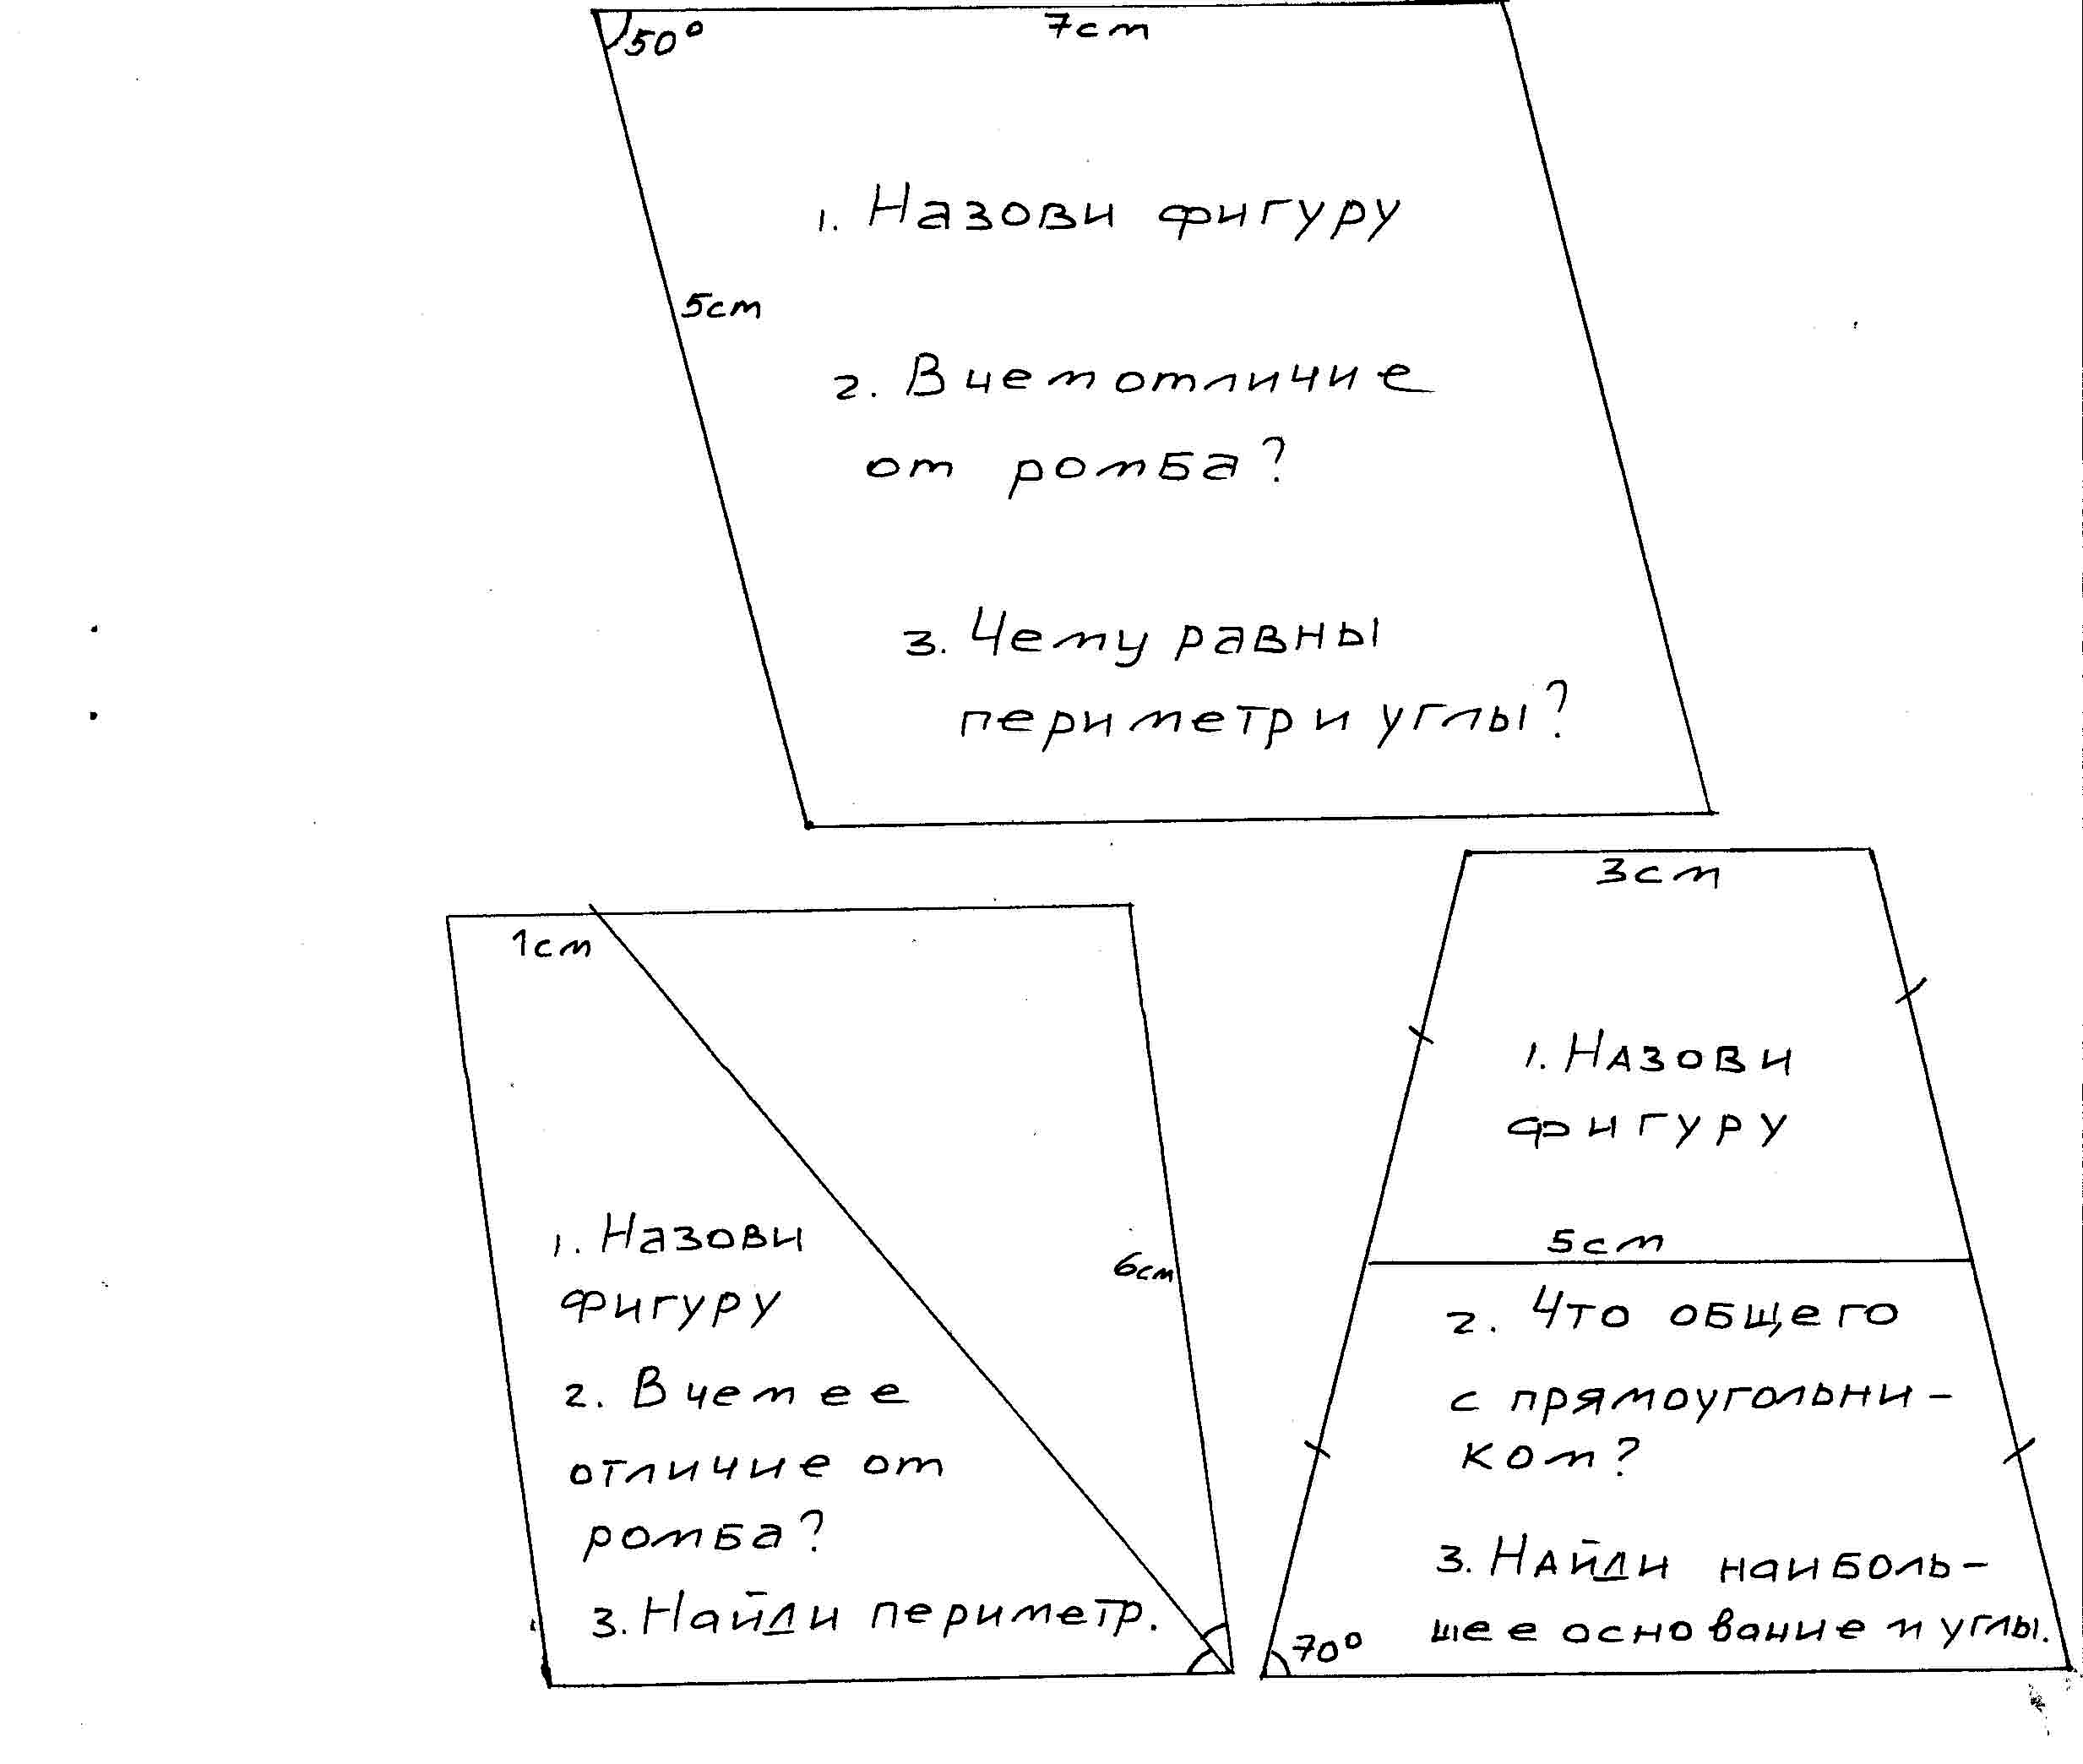 50° 7см
1. Назови фигуру
5см
2. В чем отличие
от ромба?
3. Чему равны
периметр и углы?
1см
1. Назови
фигуру
6см
2. В чем ее
отличие от
ромба?
3. Найди периметр.
3см
1. Назови
фигуру
5см
2. Что общего
с прямоугольни-
ком?
3. Найди наиболь-
шее основание и углы.
70°